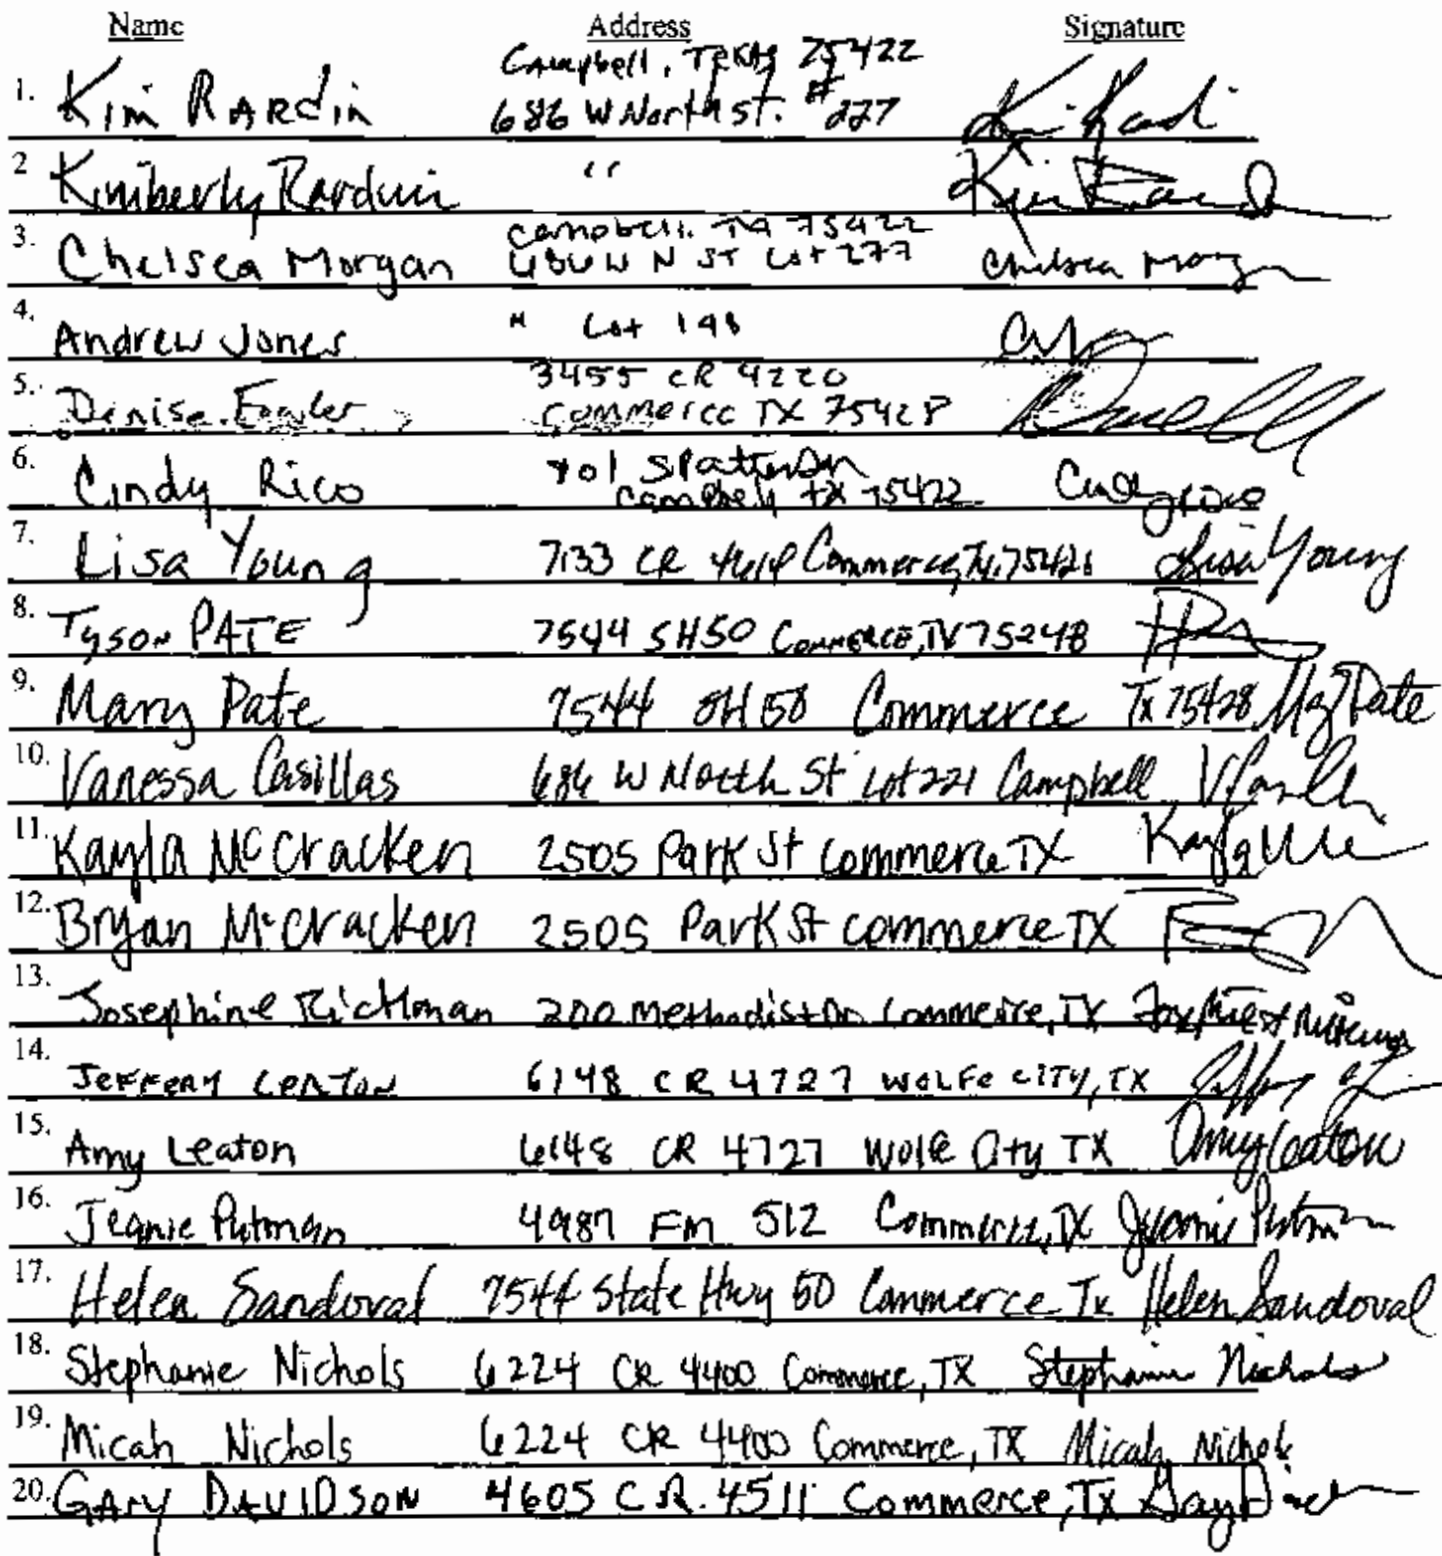 Name Address Signature
Campbell, Texas 75422
1. Kim Rardin 686 W North st. #227 Kim Rardi
2 Kimberly Rarduin "
Campbell. TX 75422
3. Chelsea Morgan 686 W N ST Lot 277 Chelsea Morg
4. Andrew Jones " Lot 198
3455 CR 4220
5. Denise Fowler Commerce TX 75428
701 S Patterson
6. Cindy Rico Campbell TX 75422 Cindy Rico
7. Lisa Young 7133 CR 4614 Commerce, Tx. 75428 Lisa Young
8. Tyson PATE 7544 SH50 COMMERCE, TX 75248
9. Mary Pate 7544 SH 50 Commerce Tx 75428 My Pate
10. Vanessa Casillas 686 W North St Lot 221 Campbell
11. Kayla McCracken 2505 Park St Commerce TX Kayla Mc
12. Bryan McCracken 2505 Park St commerce TX
13. Josephine Richman 200 Methodist Dr. Commerce, TX
14. JEFFERY LEATON 6148 CR 4727 WOLFE CITY, TX
15. Amy Leaton 6148 CR 4727 Wolfe City TX Amy Leaton
16. Jeanie Putman 4987 FM 512 Commerce, TX Jeanie Putman
17. Helen Sandoval 7544 State Hwy 50 Commerce Tx Helen Sandoval
18. Stephanie Nichols 6224 CR 4400 Commerce, TX Stephanie Nichols
19. Micah Nichols 6224 CR 4400 Commerce, TX Micah Nichols
20. GARY DAVIDSON 4605 C.R. 4511 Commerce, Tx